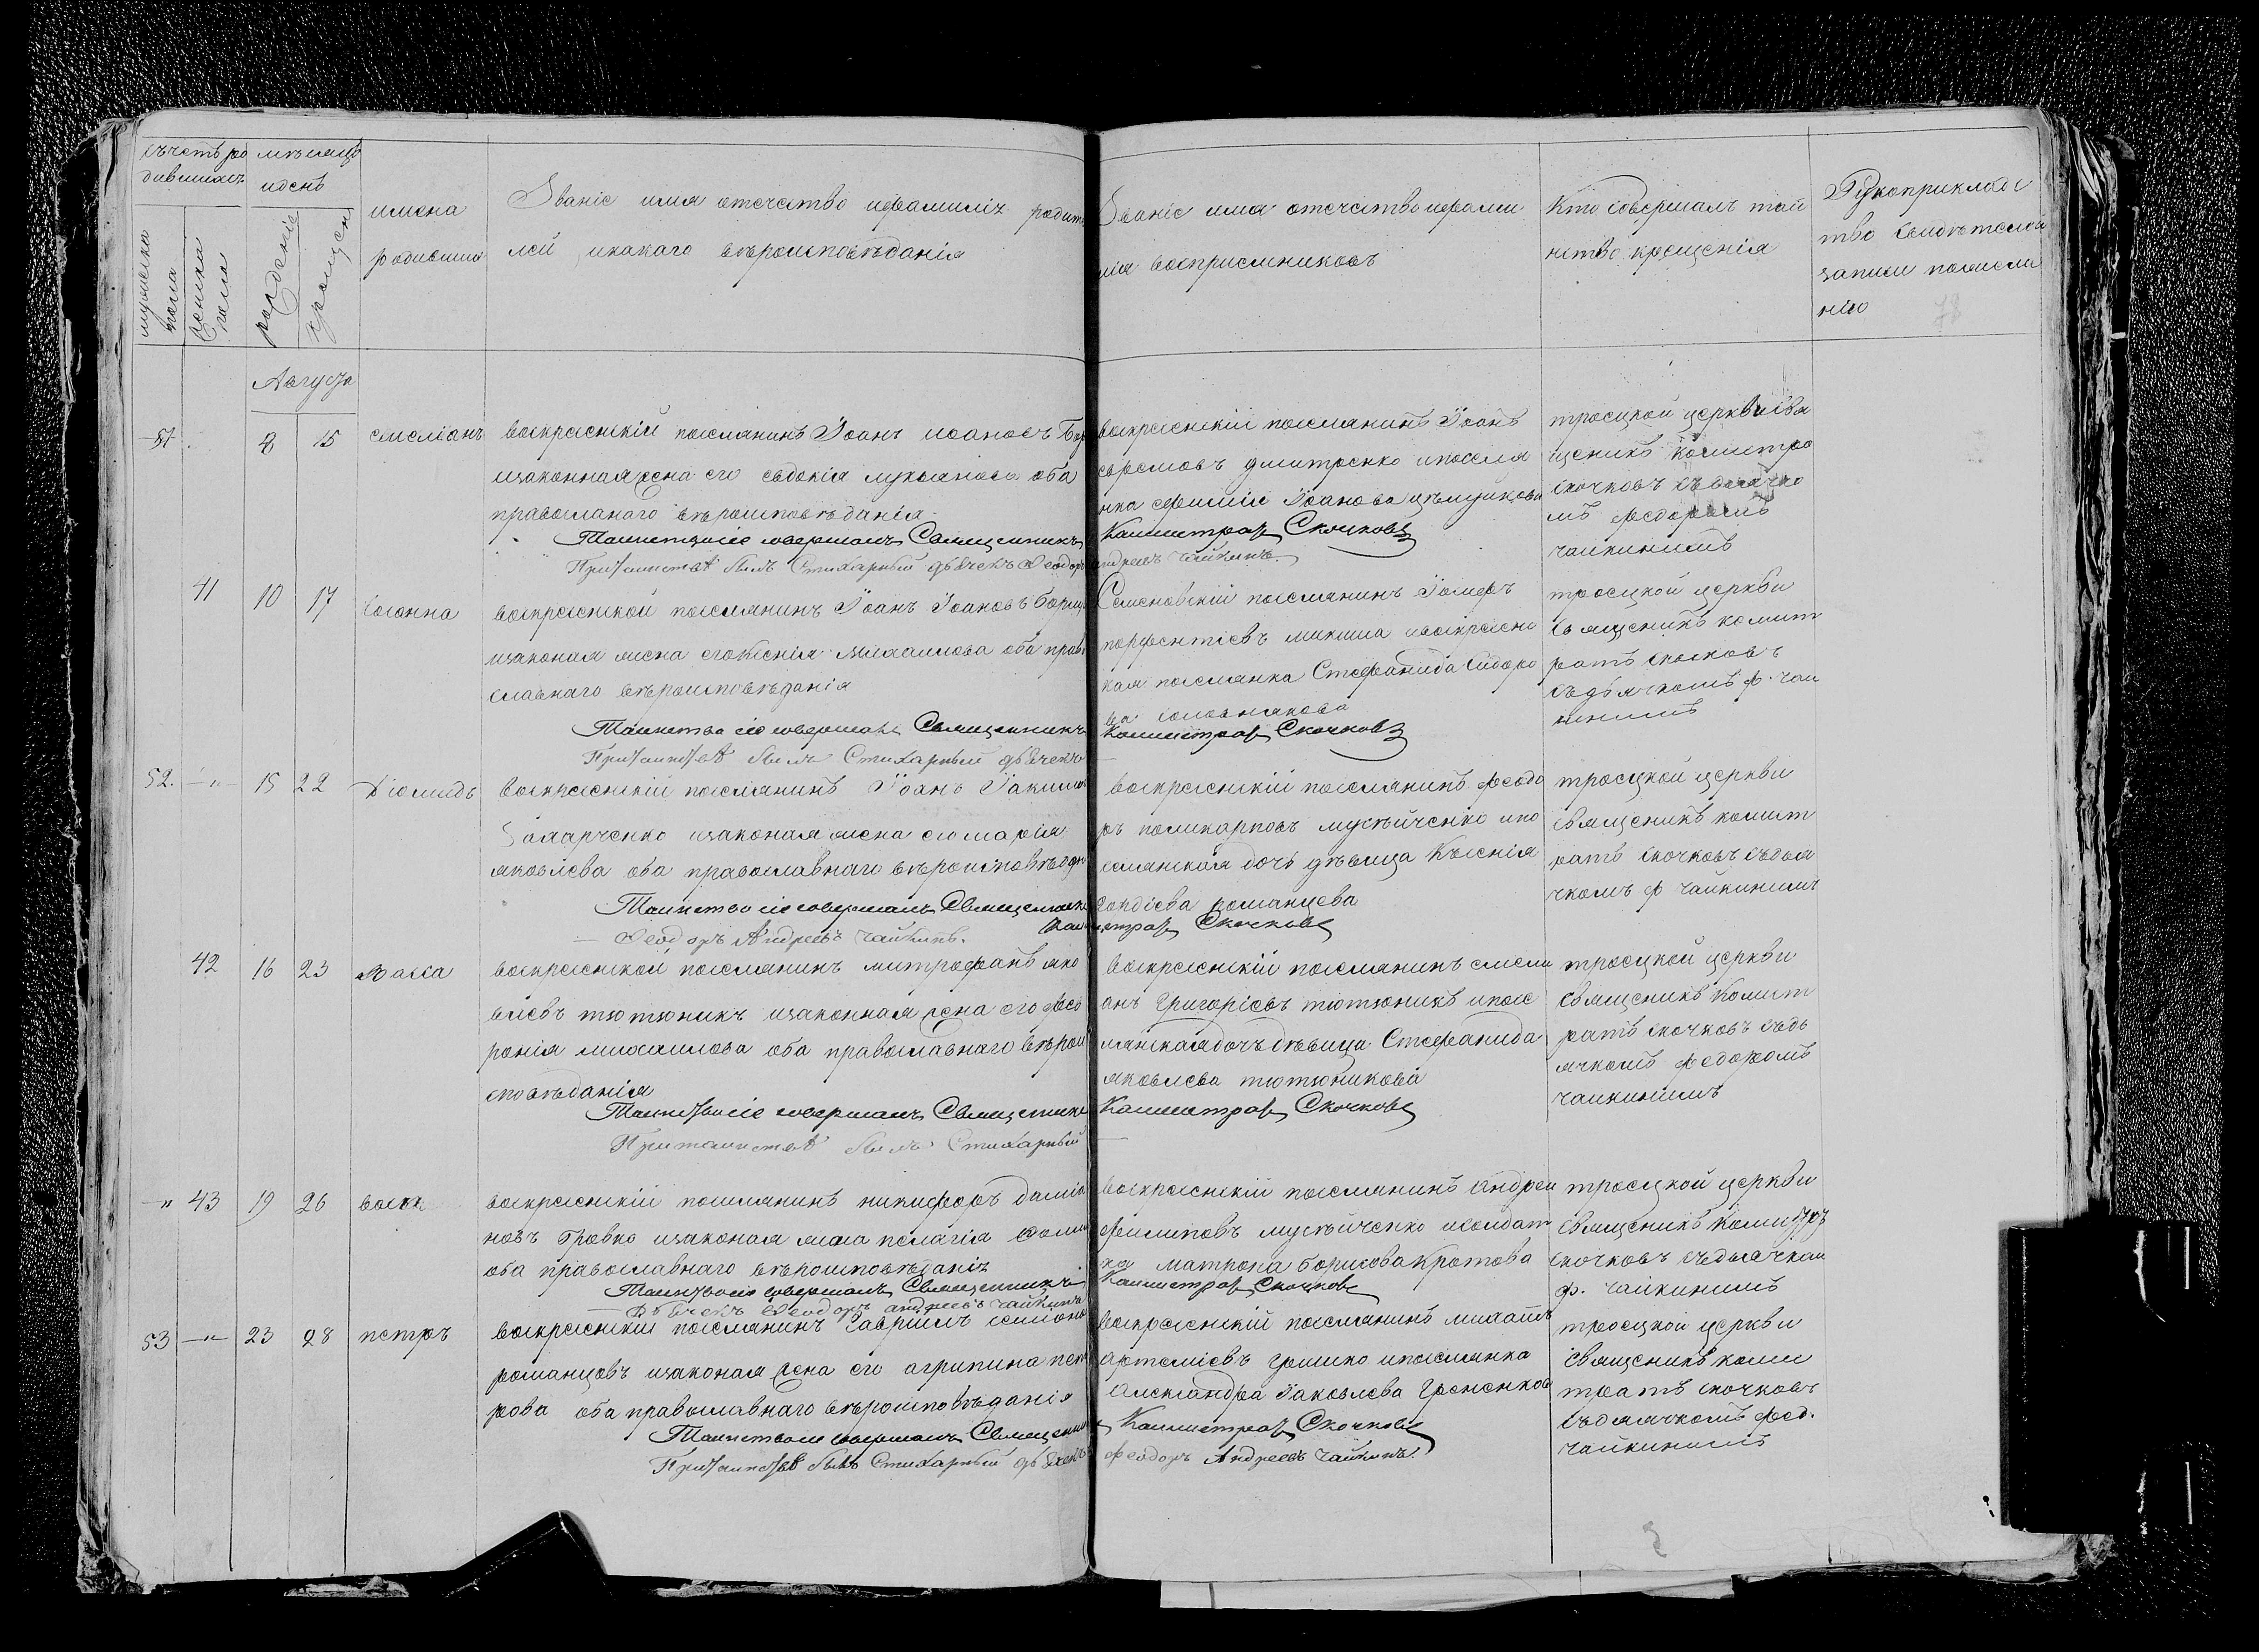 счетъ ро
дившихъ
мѣсяцъ
и день
мужеска
пола
женска
пола
рожденіе
крещен
имена
родивши
Званіе имя отечество ифамиліи родит
лей икакаго вѣроисповѣданія
Званіе имя отечество ифами
лія восприемниковъ
Кто совершалъ таи
нство крещенія
Рукоприкладс
тво свидѣтелей
записи пожела
нію
78
Августа
51
8 15
емеліанъ
воскресенскій поселянинъ Іоанъ иоановъ
изаконная жена его евдокія лукьянова оба
православнаго вѣроисповѣданія
Таинство сіе совершалъ Священникъ
При таинствѣ былъ Стихарный дьячекъ Феодоръ
воскресенскій поселянинъ Іоанъ
ефремовъ дмитренко ипоселя
нка ефимія Іоанова
Каллистратъ Скочковъ
андреевъ чайкинъ
троецкой церкви свя
щеникъ калистра
скочковъ съдьячко
мъ федоромъ
чайкинимъ
41 10 17
воскресенской поселянинъ Іоанъ Іоановъ
изаконая жена его ксенія михаилова оба право
славнаго вѣроисповѣданія
Таинство сіе совершалъ Священникъ
При таинствѣ былъ Стихарный дьячекъ
Семеновскій поселянинъ
парфентіевъ микиша ивоскресенс
кая поселянка Стефанида Сидоро
ва
Каллистратъ Скочковъ
троецкой церкви
священикъ комист
ратъ скочковъ
съдьячкомъ ф. чай
кинимъ
52. 15 22
Діомидъ
воскресенскій поселянинъ Іоанъ Іакимо
изаконая жена его марія
яковлева оба православнаго вѣроисповѣдан
Таинство сіе совершалъ Священникъ
Феодоръ Андреевъ чайкинъ.
воскресенскій поселянинъ феодо
ръ поликарповъ мусѣйченко ипо
селянская дочь дѣвица Ксенія
романцева
Каллистратъ Скочковъ
троецкой церкви
священикъ комист
ратъ скочковъ съдья
чкомъ ф чайкинимъ
42 16 23
Васса
воскресенской поселянинъ митрофанъ яко
влевъ тютюникъ изаконная жена его фев
ронія михаилова оба православнаго вѣрои
сповѣданія
Таинство сіе совершалъ Священникъ
При таинствѣ былъ Стихарный
воскресенскій поселянинъ емели
анъ григоріевъ тютюникъ ипосе
лянская дочь дѣвица Стефанида
яковлева тютюникова
Каллистратъ Скочковъ
троецкой церкви
священикъ комист
ратъ скочковъ съдь
ячкомъ федоромъ
чайкинимъ
43 19 26
васса
воскресенскій поселянинъ никифоръ даміа
новъ изаконая жена пелагія
оба православнаго вѣроисповѣданія
Таинство сіе совершалъ Священникъ
Дьячекъ Феодоръ андреевъ чайкинъ
воскресенскій поселянинъ андрей
филиповъ мусѣйченко исолдат
ка матрона борисова Кротова
Каллистратъ Скочковъ
троецкой церкви
священикъ
скочковъ съдьячком
ф. чайкинимъ
53 23 28
петръ
воскресенскій поселянинъ Гавріилъ
романцовъ изаконая жена его агрипина пет
рова оба православнаго вѣроисповѣданія
Таинство сіе совершалъ Священникъ
При таинствѣ былъ Стихарный дьячекъ
воскресенскій поселянинъ михаилъ
артеміевъ гришко ипоселянка
александра Іаковлева
Каллистратъ Скочковъ
Феодоръ Андреевъ чайкинъ
троецкой церкви
священикъ коми
тратъ скочковъ
съдьячкомъ фед.
чайкинимъ